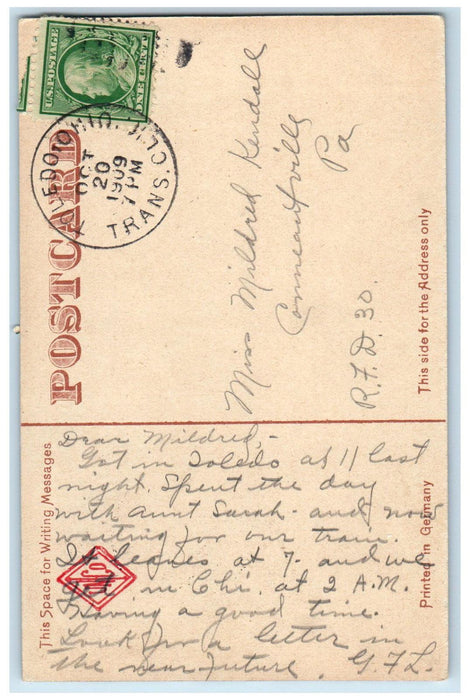 U.S. POSTAGE
ONE CENT
TOLEDO, OHIO.
OCT
20
1909
7 PM
TRANS. CLK.
POSTCARD
Miss Mildred Kendall
Conneautville
Pa
R.F.D. 30.
This side for the Address only
This Space for Writing Messages
Dear Mildred,-
Got in Toledo at 11 last
night. Spent the day
with Aunt Sarah - and now
waiting for our train.
It leaves at 7- and we
get in Chi. at 2 A.M.
Having a good time.
Look for a letter in
the near future. G.F.L.
Printed in Germany